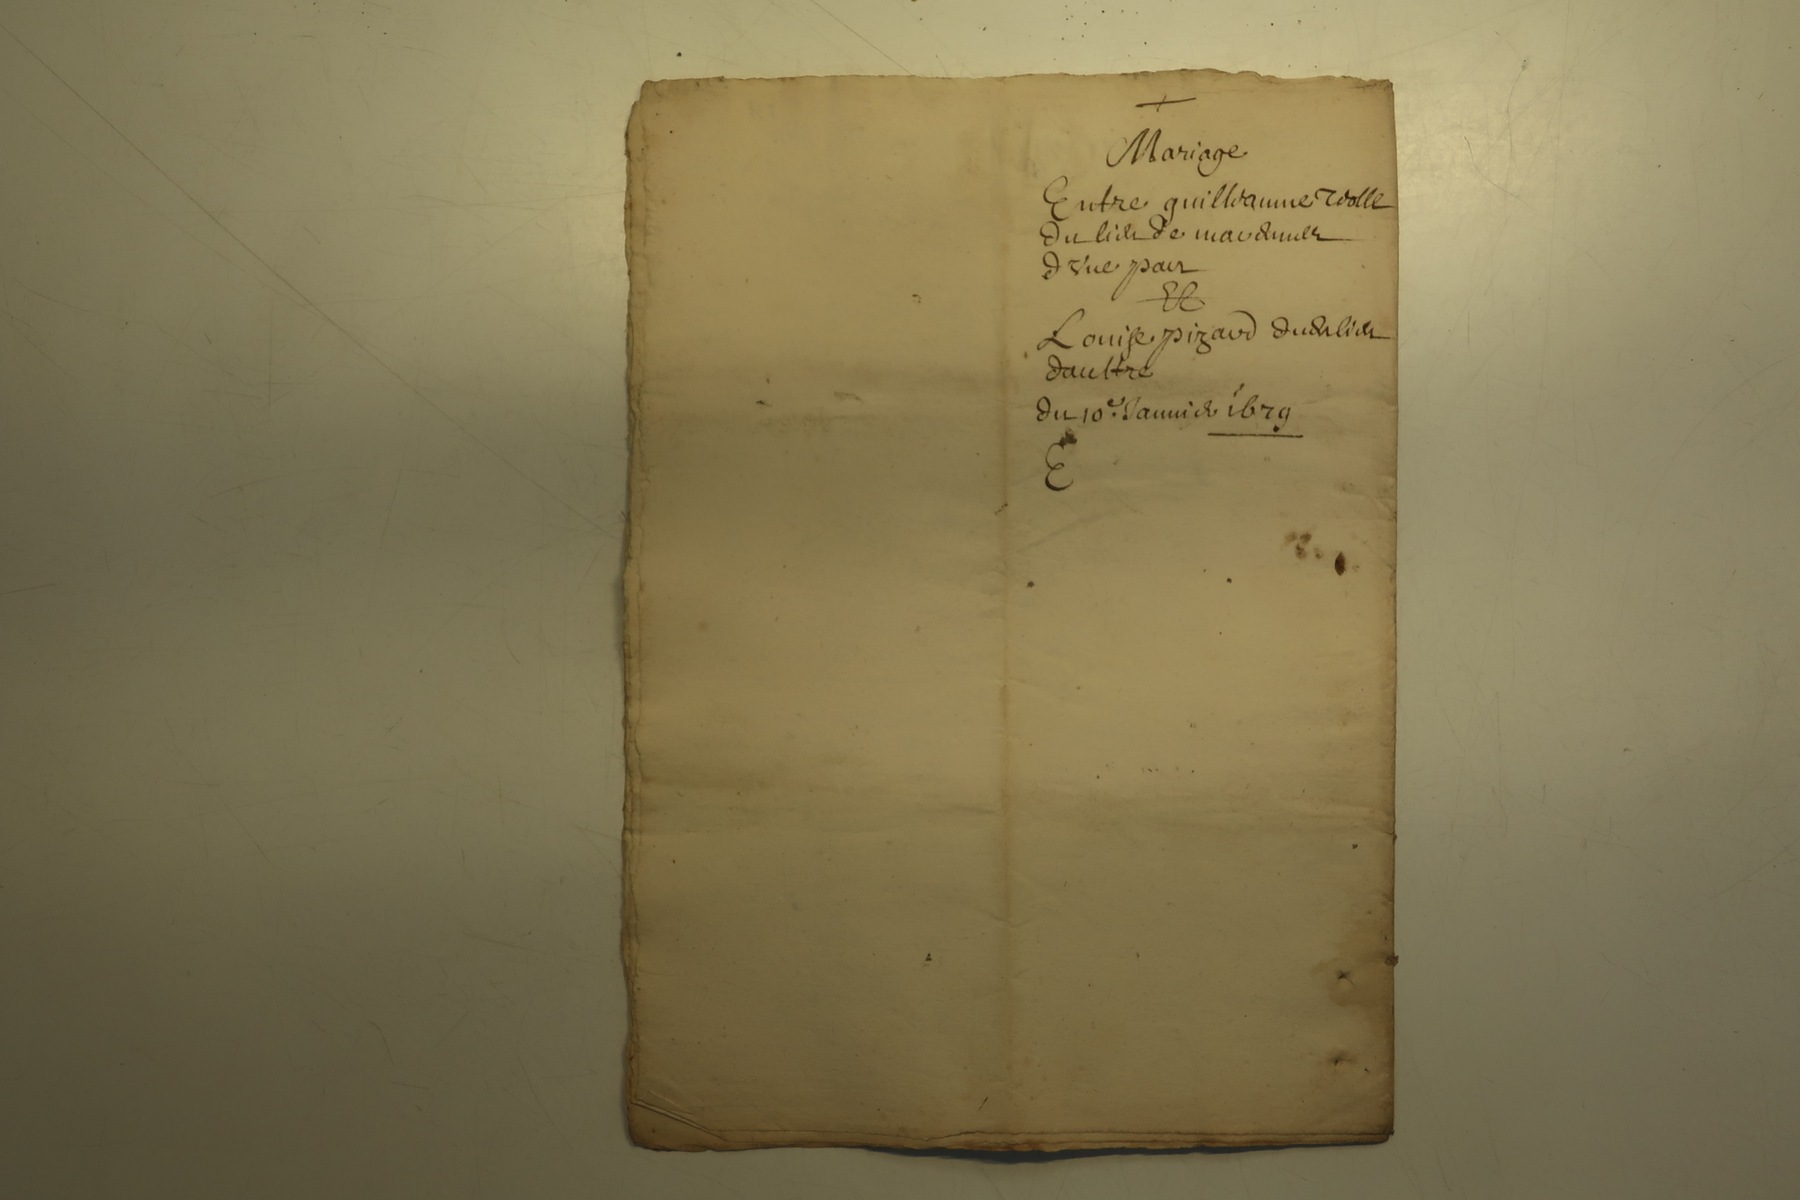 Mariage
Entre guillaume Rolle
du lieu de
d'vne part
Et
Louise pizard dud lieu
daultre
du 10e Janvier 1679
E